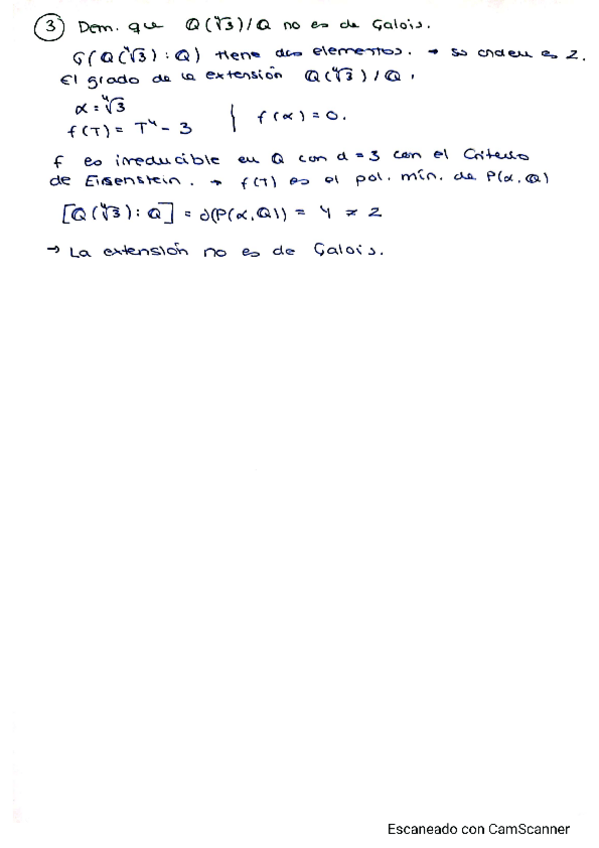 ③ Dem. que Q(∜3)/Q no es de Galois.
G(Q(∜3):Q) tiene dos elementos. → su orden es 2.
El grado de la extensión Q(∜3)/Q.
α = ∜3
f(T) = T⁴ - 3 } f(α) = 0.
f es irreducible en Q con d = 3 con el Criterio
de Eisenstein. → f(T) es el pol. mín. de P(α,Q)
[Q(∜3):Q] = ∂(P(α,Q)) = 4 ≠ 2
→ La extensión no es de Galois.
Escaneado con CamScanner